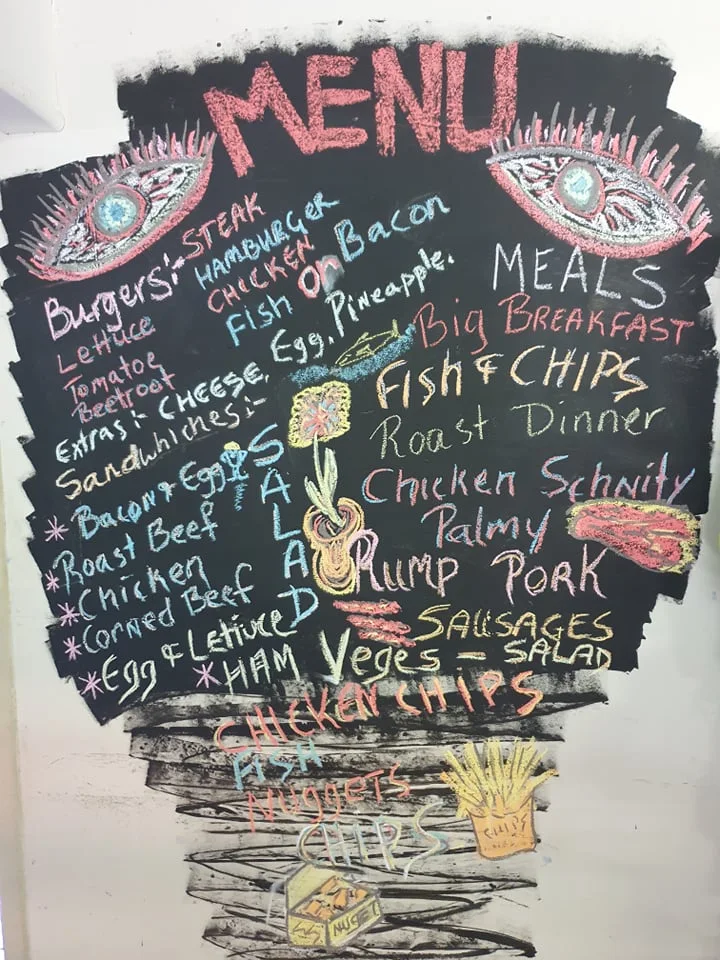 MENU
Burgers:- STEAK
HAMBURGER
CHICKEN
Fish OR Bacon
Lettuce
Tomatoe
Beetroot
Extras:- CHEESE, Egg, Pineapple.
Sandwhiches:-
* Bacon & Egg
* Roast Beef
* Chicken
* Corned Beef
* Egg & Lettuce
* HAM
SALAD
MEALS
Big BREAKFAST
FisH & CHIPS
Roast Dinner
Chicken Schnity
Palmy
RUMP PORK
SAUSAGES
Veges - SALAD
CHICKEN CHIPS
FISH
NuggETS
CHIPS
CHIPS